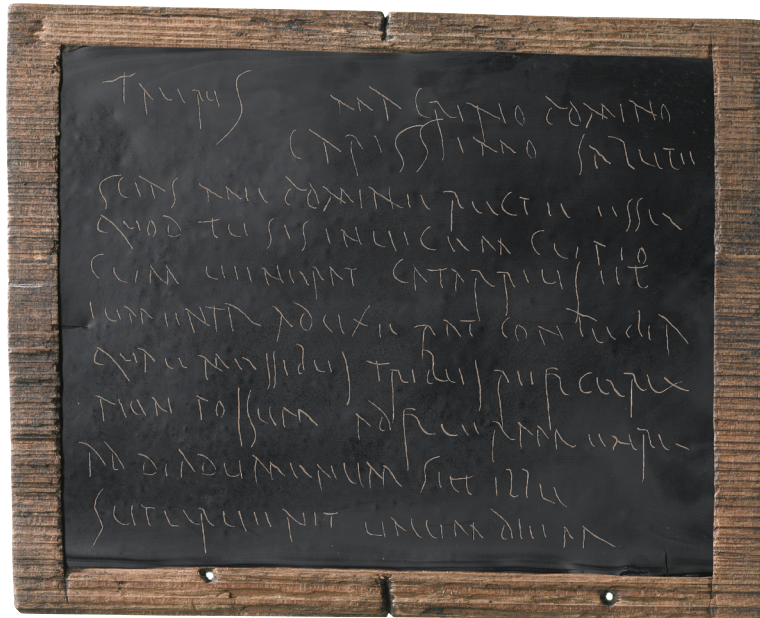 Taurus Macrino domino
carissimo salute
scias me domine recte esse
quod tu sis invicem cupio
cum venerat Catarrius et
iumenta aduxerat
quae messibus tribus reficere
non possum
ad Diadumenum set ille
supervenit unum diem